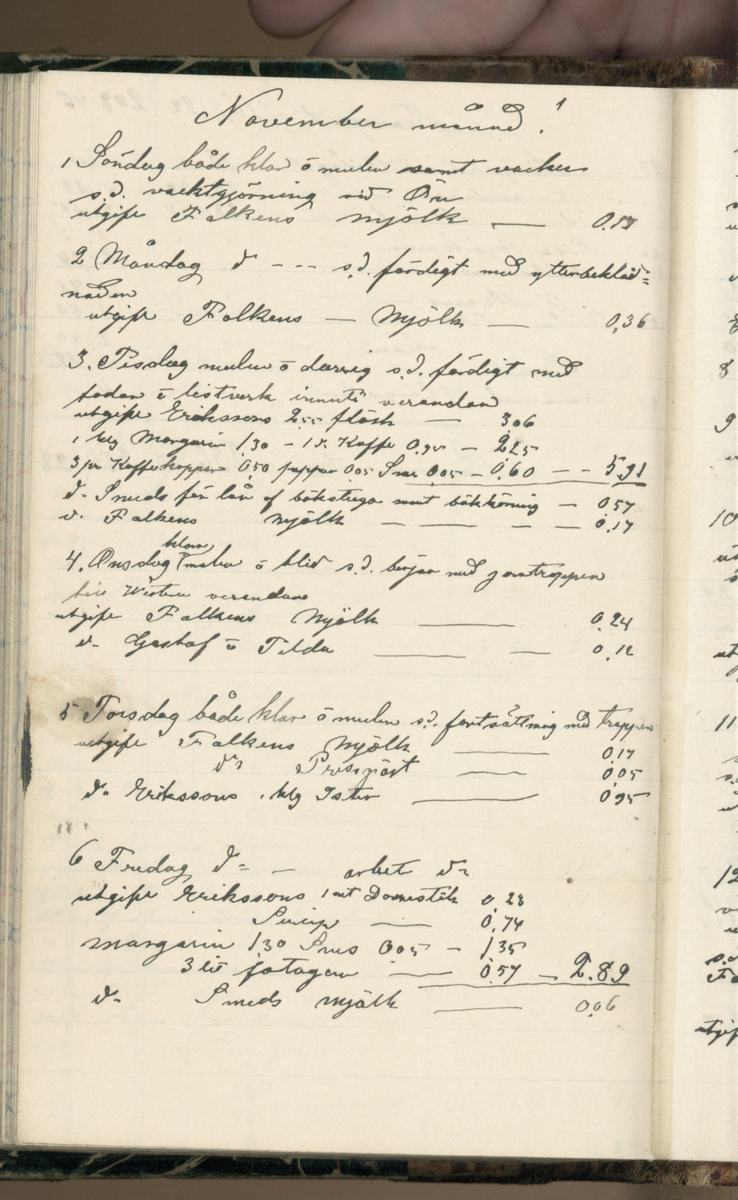 November månad. 1
1 Söndag både klar o mulen samt vacker
s.d. vacktgjörning vid Ön
utgift Falkens mjölk — 0,17
2 Måndag d° - - - s.d. färdigt med ytterbekläd=
naden
utgift Falkens — Mjölk — 0,36
3. Tisdag mulen o s.d. färdigt med
o listverk verandan
utgift Erikssons 2,55 fläsk — 3,06
1 kg Margarin 1,30 – 1 d° Kaffe 0,95 – 2,25
3 pr Kaffekoppar 0,50 papper 0,05 Snus 0,05 – 0,60 – – 5,91
d° Smeds för lån af samt — 0,57
d. Falkens mjölk — — — — 0,17
klar
4. Onsdag mulen o blid s.d. med
Westra verandan
utgift Falkens Mjölk — 0,24
d° Gustaf o Tilda — — 0,12
5 Torsdag både klar o mulen s.d. fortsättning med trappen
utgift Falkens Mjölk — 0,17
d° Pressjäst — 0,05
d° Erikssons 1 kg Ister — 0,95
6 Fredag d° — arbet d°
utgift Erikssons 1 mt Domestik 0,23
Sirap — 0,74
margarin 1,30 Snus 0,05 – 1,35
3 lit fotogen — 0,57 – 2.89
d° Smeds mjölk — 0,06